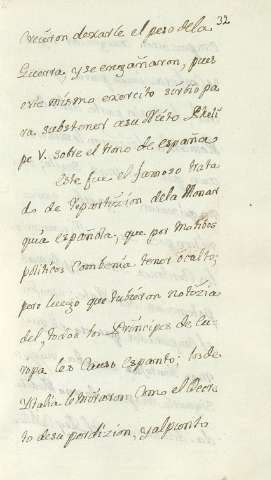 32
Creieron dexarle el peso de la
Guerra, y se engañaron, pues
este mismo exercito sirbio pa
ra substener a su Nieto Pheli
pe V. sobre el trono de españa.
Este fue el famoso trata
do de repartizion de la Monar
quia española, que por motibos
politicos combenia tener oculto;
pero luego que tubieron notizia
del, todos los Prinzipes de Eu
ropa les causo espanto; los de
Ytalia le miraron como el Decre
to de su perdizion, y al punto